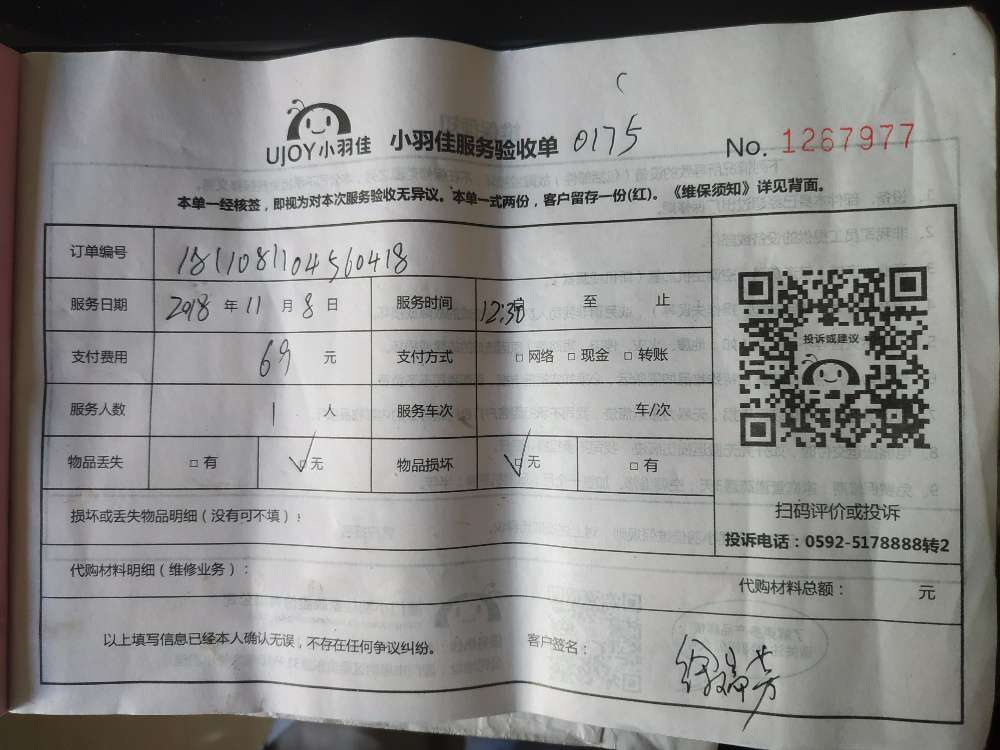 UJOY小羽佳 小羽佳服务验收单 0175 No. 1267977
本单一经核签，即视为对本次服务验收无异议。本单一式两份，客户留存一份(红)。《维保须知》详见背面。
订单编号 1811081104560418
服务日期 2018 年 11 月 8 日 服务时间 12:30 至 止
支付费用 69 元 支付方式 □ 网络 □ 现金 □ 转账
服务人数 1 人 服务车次 车/次
物品丢失 □ 有 ☑ 无 物品损坏 ☑ 无 □ 有
投诉或建议
扫码评价或投诉
投诉电话：0592-5178888转2
损坏或丢失物品明细（没有可不填）：
代购材料明细（维修业务）：
代购材料总额： 元
以上填写信息已经本人确认无误，不存在任何争议纠纷。 客户签名： 徐瑞芳